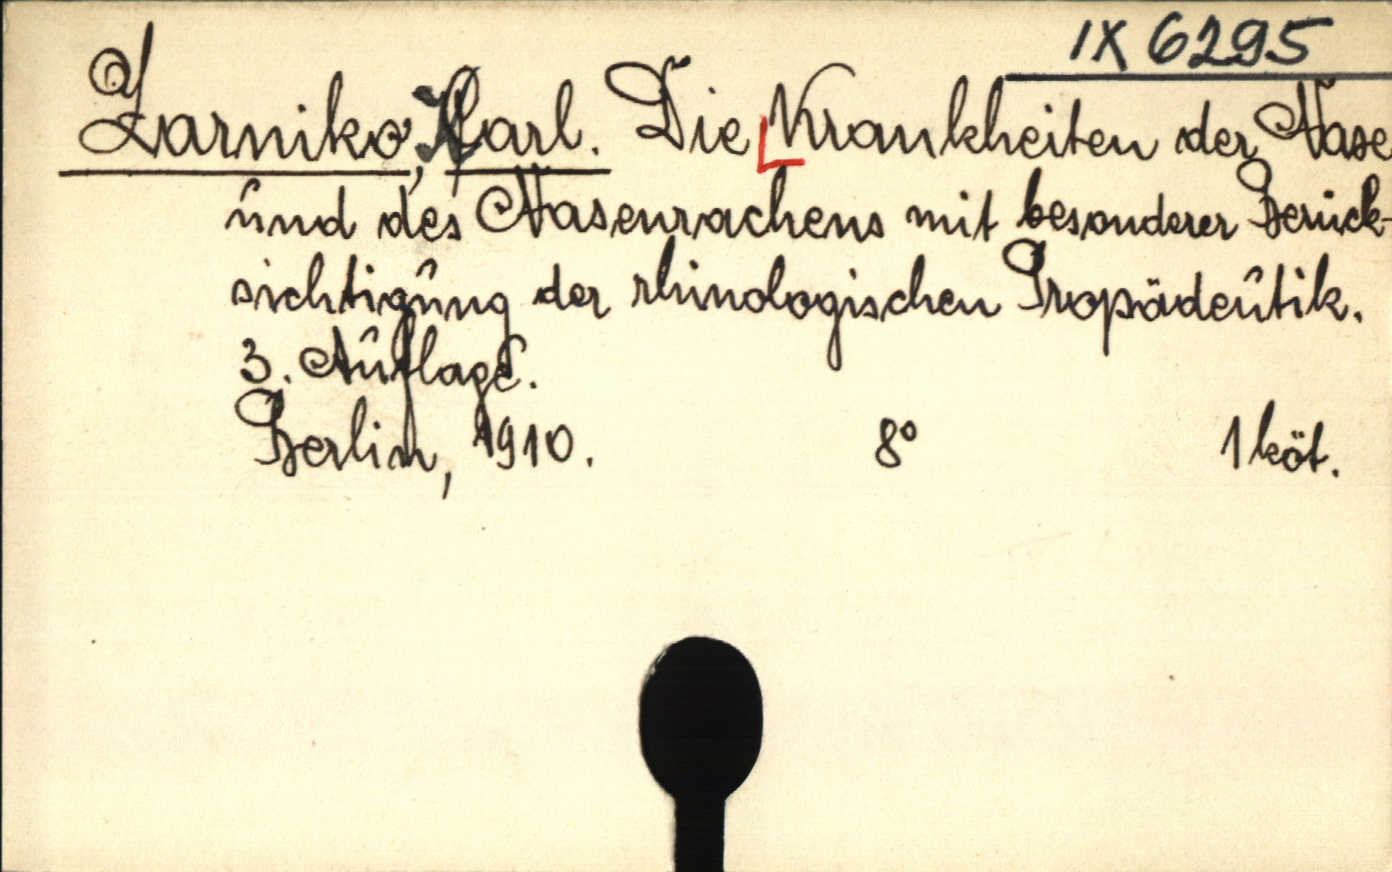 IX 6295
Zarniko, Karl. Die Krankheiten der Nase
und des Nasenrachens mit besonderer Berück-
sichtigung der rhinologischen Propädeutik.
3. Auflage.
Berlin, 1910. 8° 1 köt.